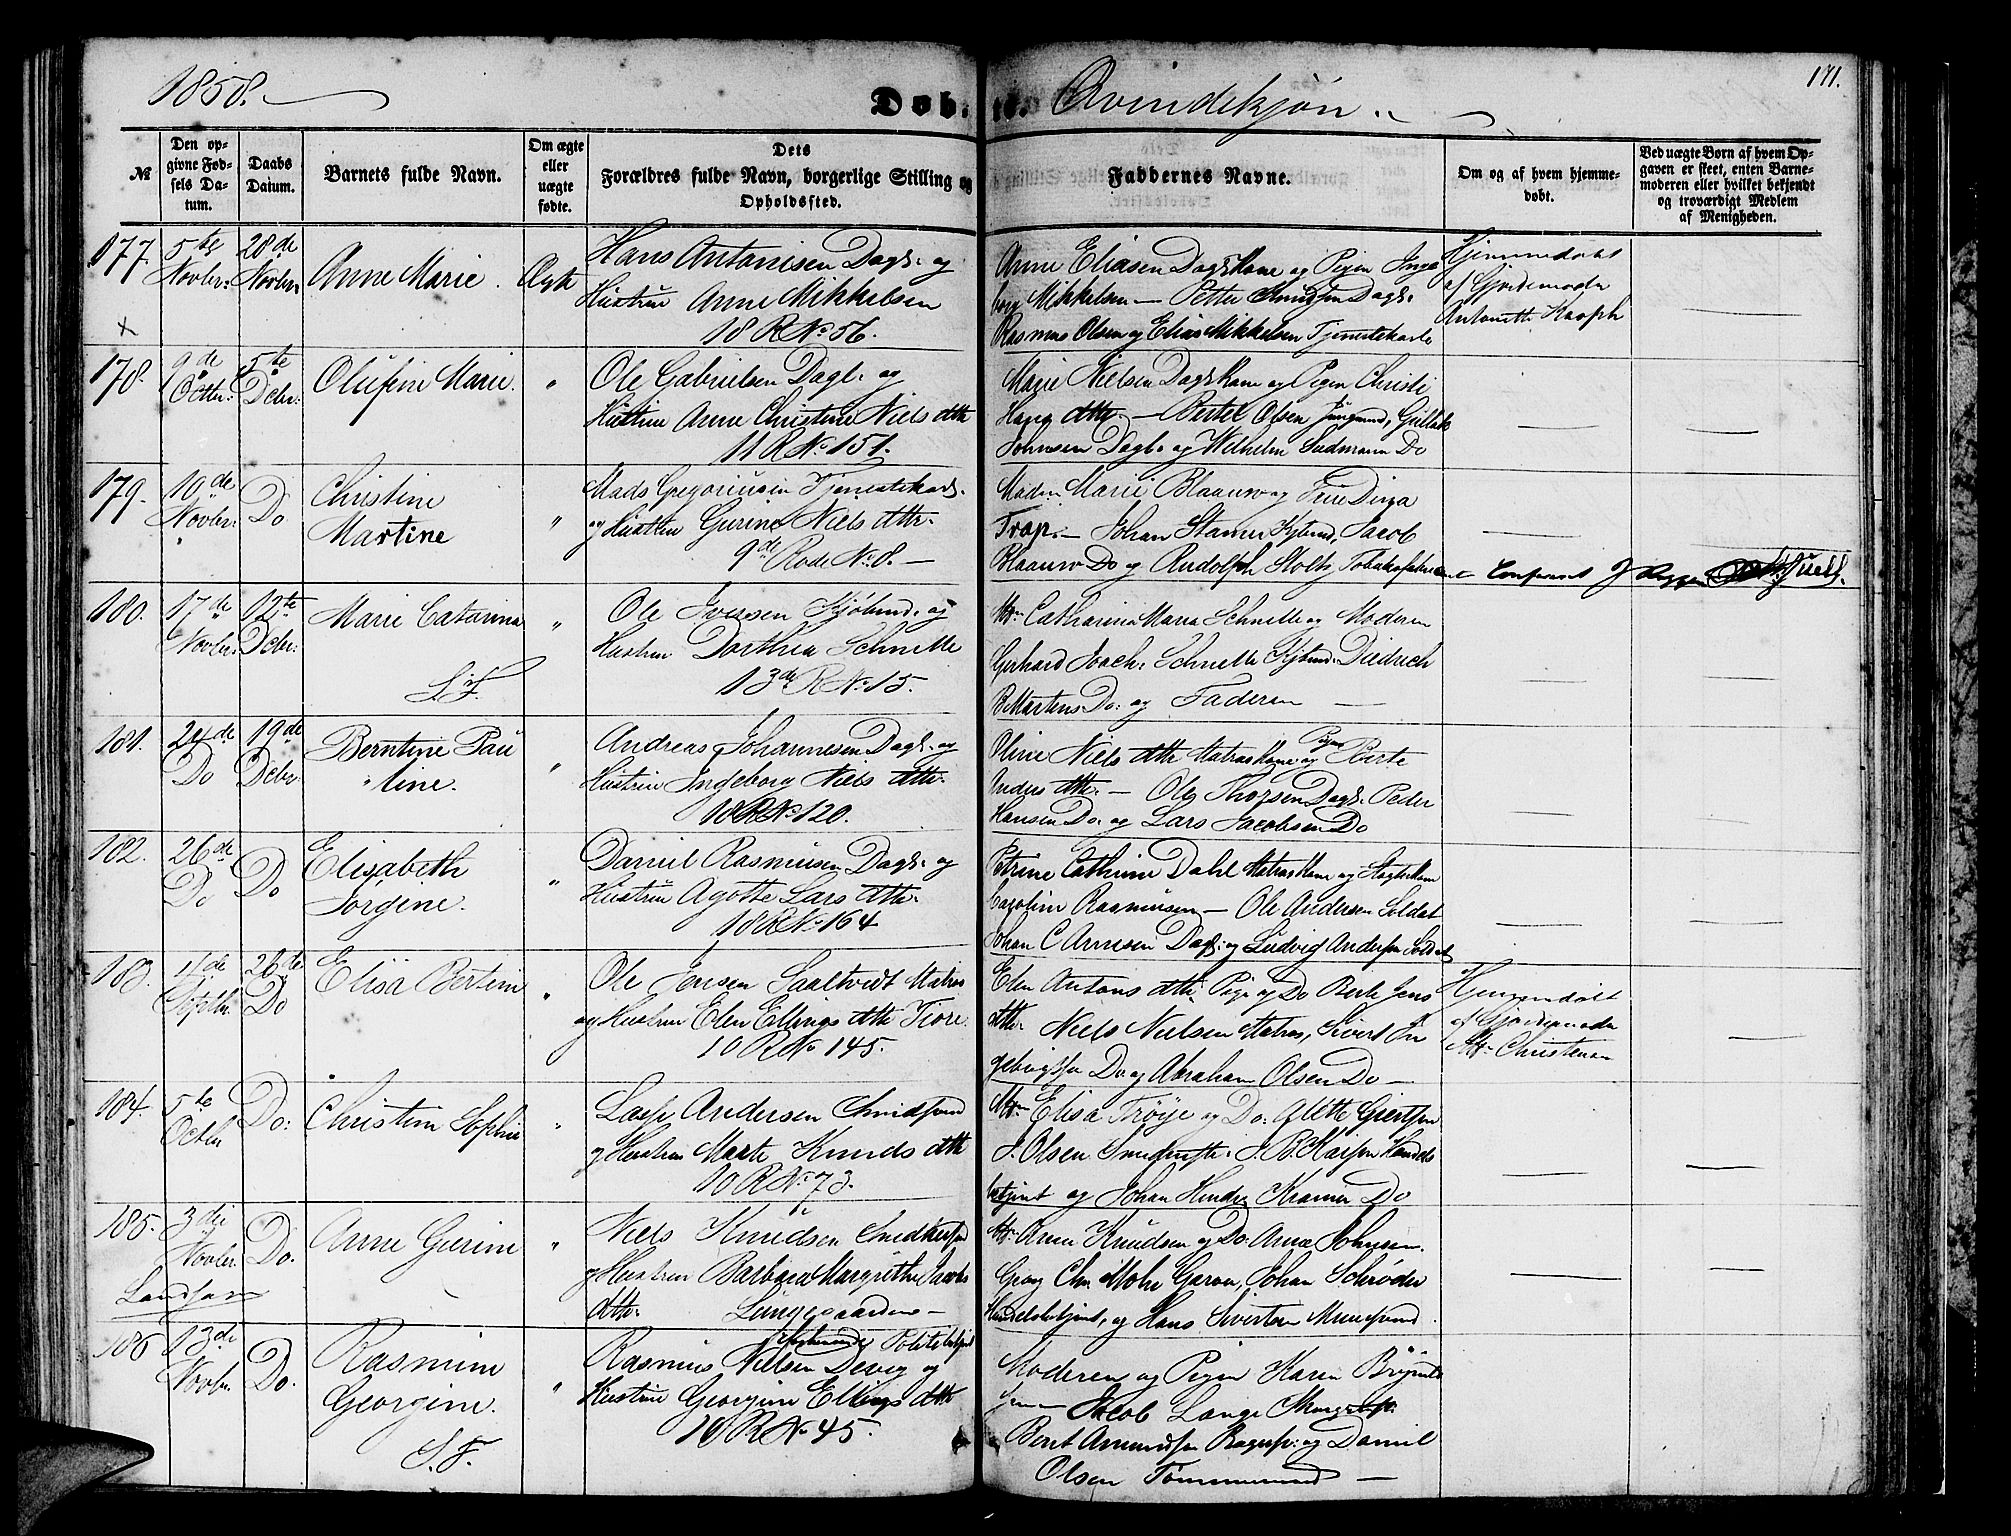 1858.
Døbte.
Qvindekjøn.
171.
№
Den op-
givne Fød-
sels Da-
tum.
Daabs
Datum.
Barnets fulde Navn.
Om ægte
eller
uægte
fødte.
Dets
Forældres fulde Navn, borgerlige Stilling og
Opholdssted.
Faddernes Navne.
Om og af hvem hjemme-
døbt.
Ved uægte Børn af hvem Op-
gaven er skeet, enten Barne-
moderen eller hvilket bekjendt
og troværdigt Medlem
af Menigheden.
177. 5te Novbr: 28de Novbr: Anne Marie. Ægte
Hans Antonisen Dagl. og
Hustrue Anne Mikkelsen
18 R No 56.
Anne Eliasen Dagl Kone og Pigen Inge
borg Mikkelsen — Petter Knudsen Dagl.
Rasmus Olsen og Elias Mikkelsen Tjenestekarle
Hjemmedøbt
af Gjordemoder
Antonette
178. 9de Octbr: 5te Dcbr: Olufine Marie. "
Ole Gabrielsen Dagl. og
Hustrue Anne Christine Niels dttr
11 R No 151.
Marie Nielsen Dagl Kone og Pigen Christi
Hans dttr. — Bertel Olsen
Johnsen Dagl. og Wilhelm Do
179. 10de Novbr: Do Christine
Martine "
Mads Gregoriussen Tjenestekarl.
og Hustrue Gurine Niels dttr.
9de Rode No 8. —
Madm Marie Blaauw og Frue
Trap. — Johan Stamer Kjbmd, Jacob
Blaauw Do og Rudolph Stoltz Tobaksfabrikant
180. 17de Novbr: 12te Dcbr: Marie Catarina "
S.F.
Ole Iversen Kjøbmd. og
Hustrue Dorthea Schnelle
13de R No 15.
Mm Catharina Maria Schnelle og Moderen
Gerhard Joach: Schnelle Kjbmd. Diedrich
B Martens Do. og Faderen —
181. 24de Do 19de Dcbr Berntine Pau
line. "
Andreas Johannesen Dagl. og
Hustrue Ingeborg Niels dttr.
10 R No 120.
Oline Niels dttr Matros Kone og Pigen Berte
Anders dttr. — Ole Thorsen Dagl. Peder
Hansen Do. og Lars Jacobsen Do
182. 26de Do Do Elisabeth
Jørgine. "
Daniel Rasmusen Dagl. og
Hustrue Agathe Lars dttr.
18 R No 164
Petrine Cathrine Dahl Matros Kone og
Caroline Rasmusen — Ole Andersen Soldat
Johan C Arnesen Dagl. og Ludvig Andersen Soldat
183. Septbr. 26de Do Elisa Bertine "
Ole Jensen Saaltvedt Matros
og Hustrue Elen Ellings dttr
10 R No 145.
Elen Antons dttr Pige og Do Berte Jens
dttr. Niels Nielsen Matros, Sivert In
gebrigtsen Do og Abraham Olsen Do —
Hjemmedøbt
af Gjordemoder
Mm Christensen
184. 5te Octbr Do: Christine Sophie "
Lasse Andersen Smidsvend
og Hustrue Marte Knuds dttr
10 R No 73.
Mm Elisa Trøye og Do: Alette Giertsen
J. Olsen J. B. Handels
betjent og Johan Hendr. Kramer Do
185. 3die Novbr. Do. Anne Gurine "
Niels Knudsen Snedkersvd
og Hustrue Barbara Margrethe Jacobs
dttr. Lunggaarden —
Mm Anna Knudsen og Do. Anna Johnsen.
Georg Chr. Mohr Garver, Johan Schrøder
Handelsbetjent, og Hans Sivertsen Muursvend
Landsogn
186 13de Novbr. Do. Rasmine
Georgine.
S.F. "
Politibetjent
Rasmus Nielsen Devig og
Hustrue Georgine Ellings dttr
10 R No 45.
Moderen og Pigen Karen
Jacob Lange
Bent Amundsen og Daniel
Olsen Tømmermand —